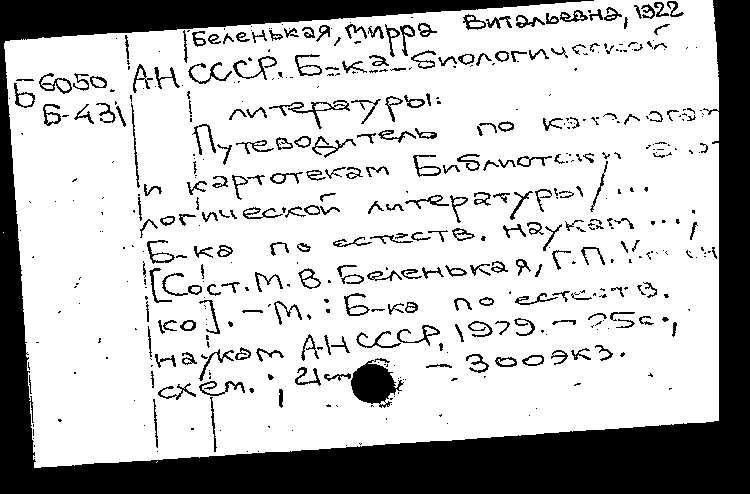 Беленькая, Мирра Витальевна, 1922
Б 6050. АН СССР. Б-ка биологической
Б-431 литературы:
Путеводитель по каталогам
и картотекам Библиотеки
логической литературы / ...
Б-ка по естеств. наукам ...;
[Сост. М. В. Беленькая, Г. П.
ко]. — М. : Б-ка по естеств.
наукам АН СССР, 1979. — 25с.,
схем. ; 21 — 300 экз.